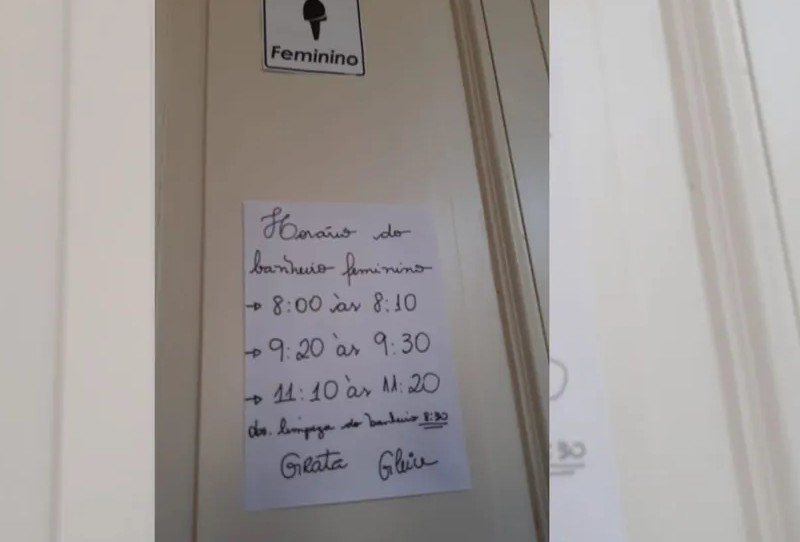 Feminino
Horário do
banheiro feminino
→ 8:00 às 8:10
→ 9:20 às 9:30
→ 11:10 às 11:20
obs. limpeza do banheiro 8:30
Grata Gleice